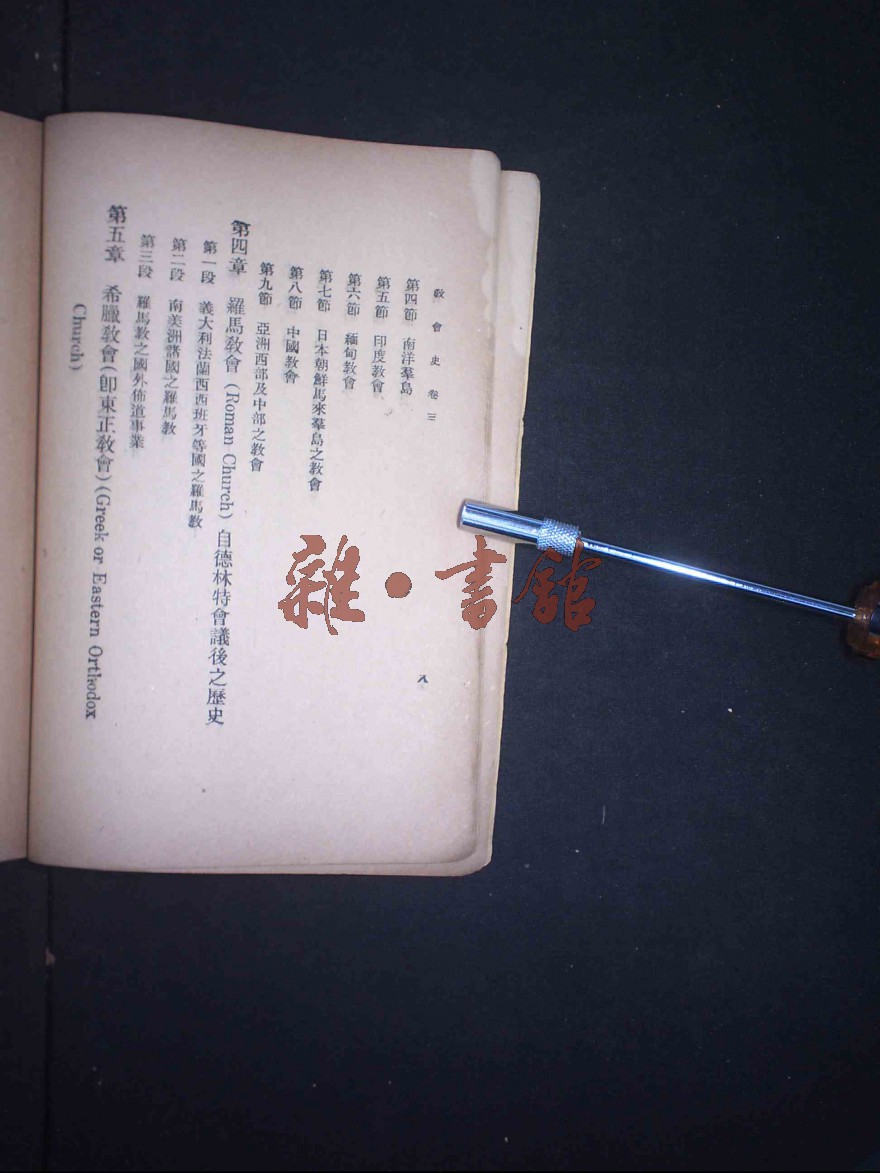 敎會史 卷三
第四節 南洋羣島
第五節 印度敎會
第六節 緬甸敎會
第七節 日本朝鮮馬來羣島之敎會
第八節 中國敎會
第九節 亞洲西部及中部之敎會
第四章 羅馬敎會 (Roman Church) 自德林特會議後之歷史
第一段 義大利法蘭西西班牙等國之羅馬敎
第二段 南美洲諸國之羅馬敎
第三段 羅馬敎之國外佈道事業
第五章 希臘敎會(卽東正敎會)(Greek or Eastern Orthodox
Church)
八
雜•書館